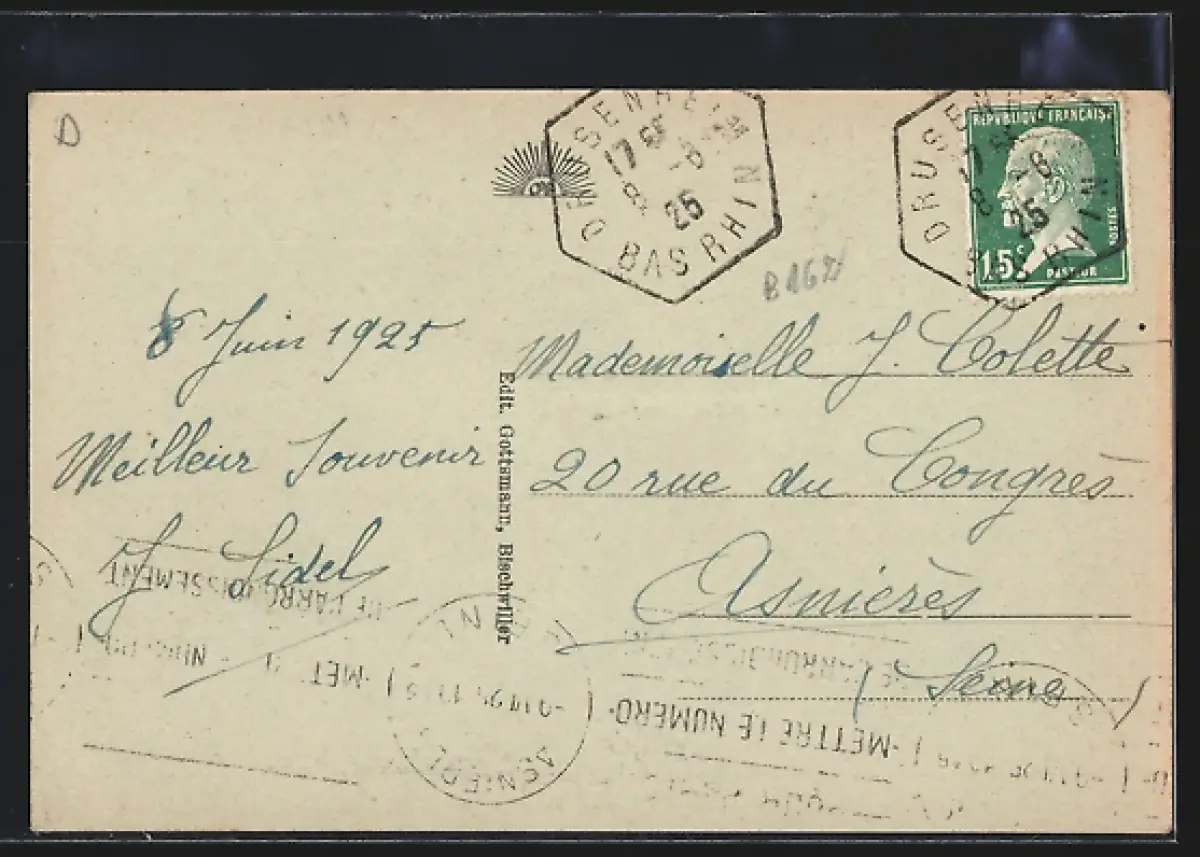 D
DRUSENHEIM
17 35
8 -6
25
BAS RHIN
DRUSENHEIM
17 35
8 -6
25
BAS RHIN
REPUBLIQUE FRANÇAISE
POSTES
15c
PASTEUR
8 Juin 1925
Meilleur Souvenir
J. Sidel
Edit. Gottsmann, Bischwiller
Mademoiselle J. Colette
20 rue du Congrès
Asnières
(Seine)
DE L'ARRONDISSEMENT
-METTRE LE NUMERO-
ASNIERES